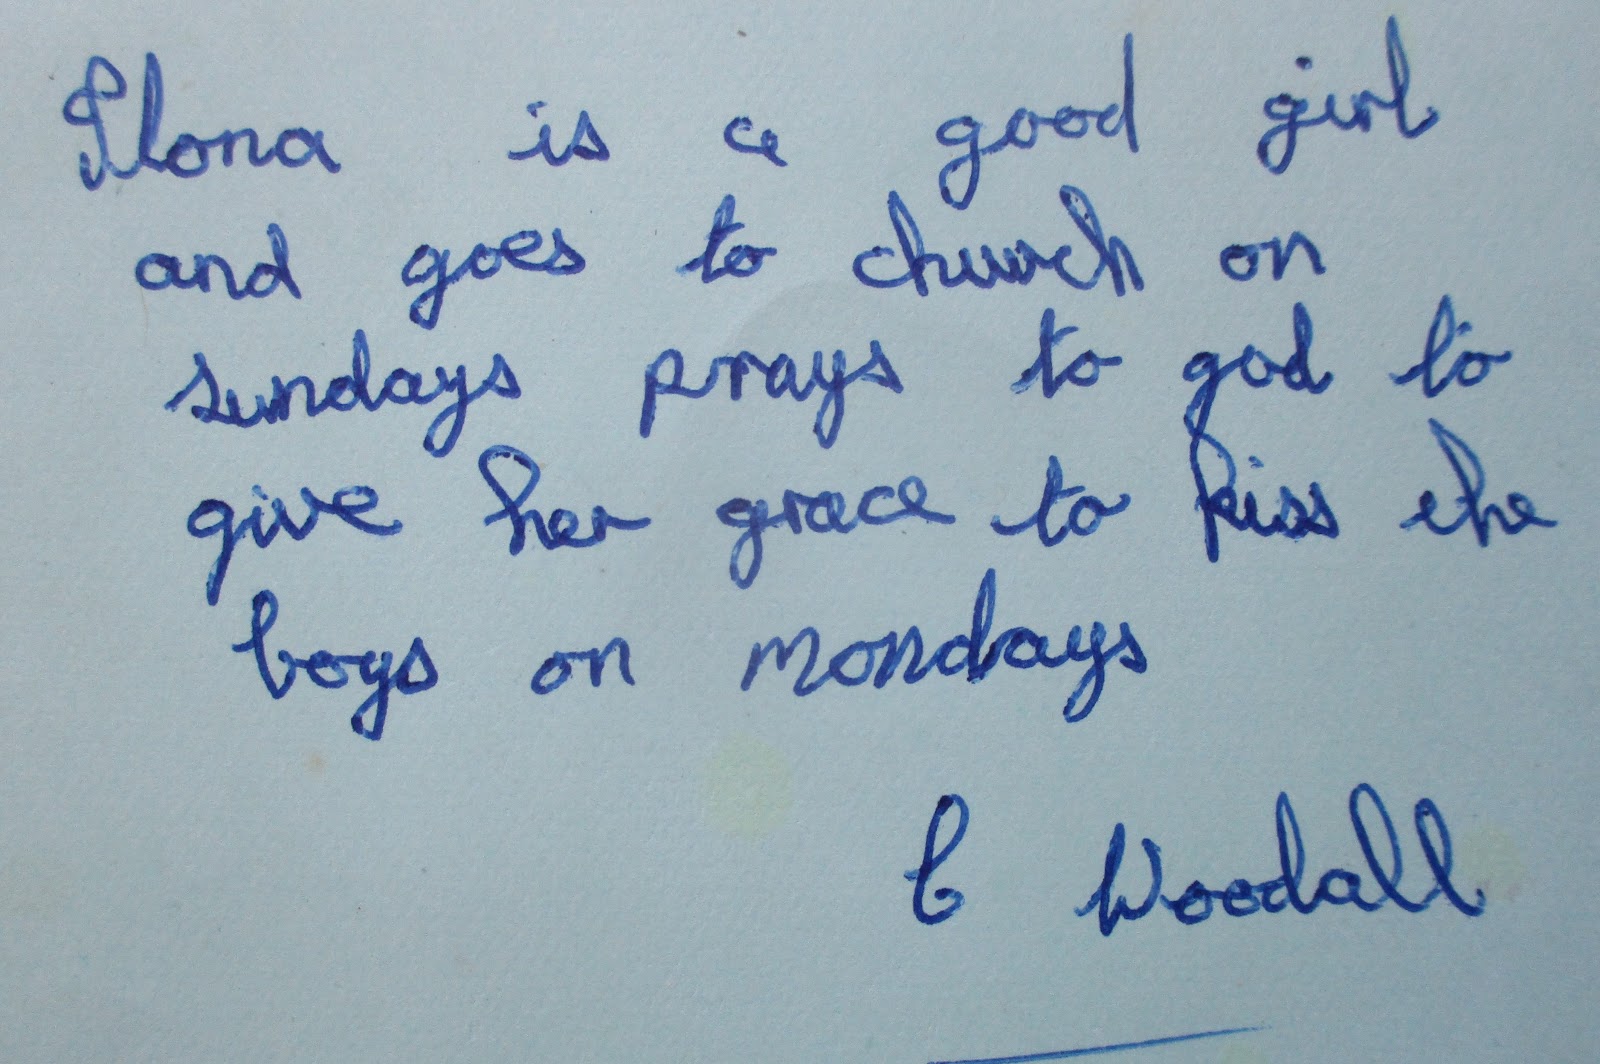 Ilona is a good girl
and goes to church on
sundays prays to god to
give her grace to kiss the
boys on mondays
C Woodall